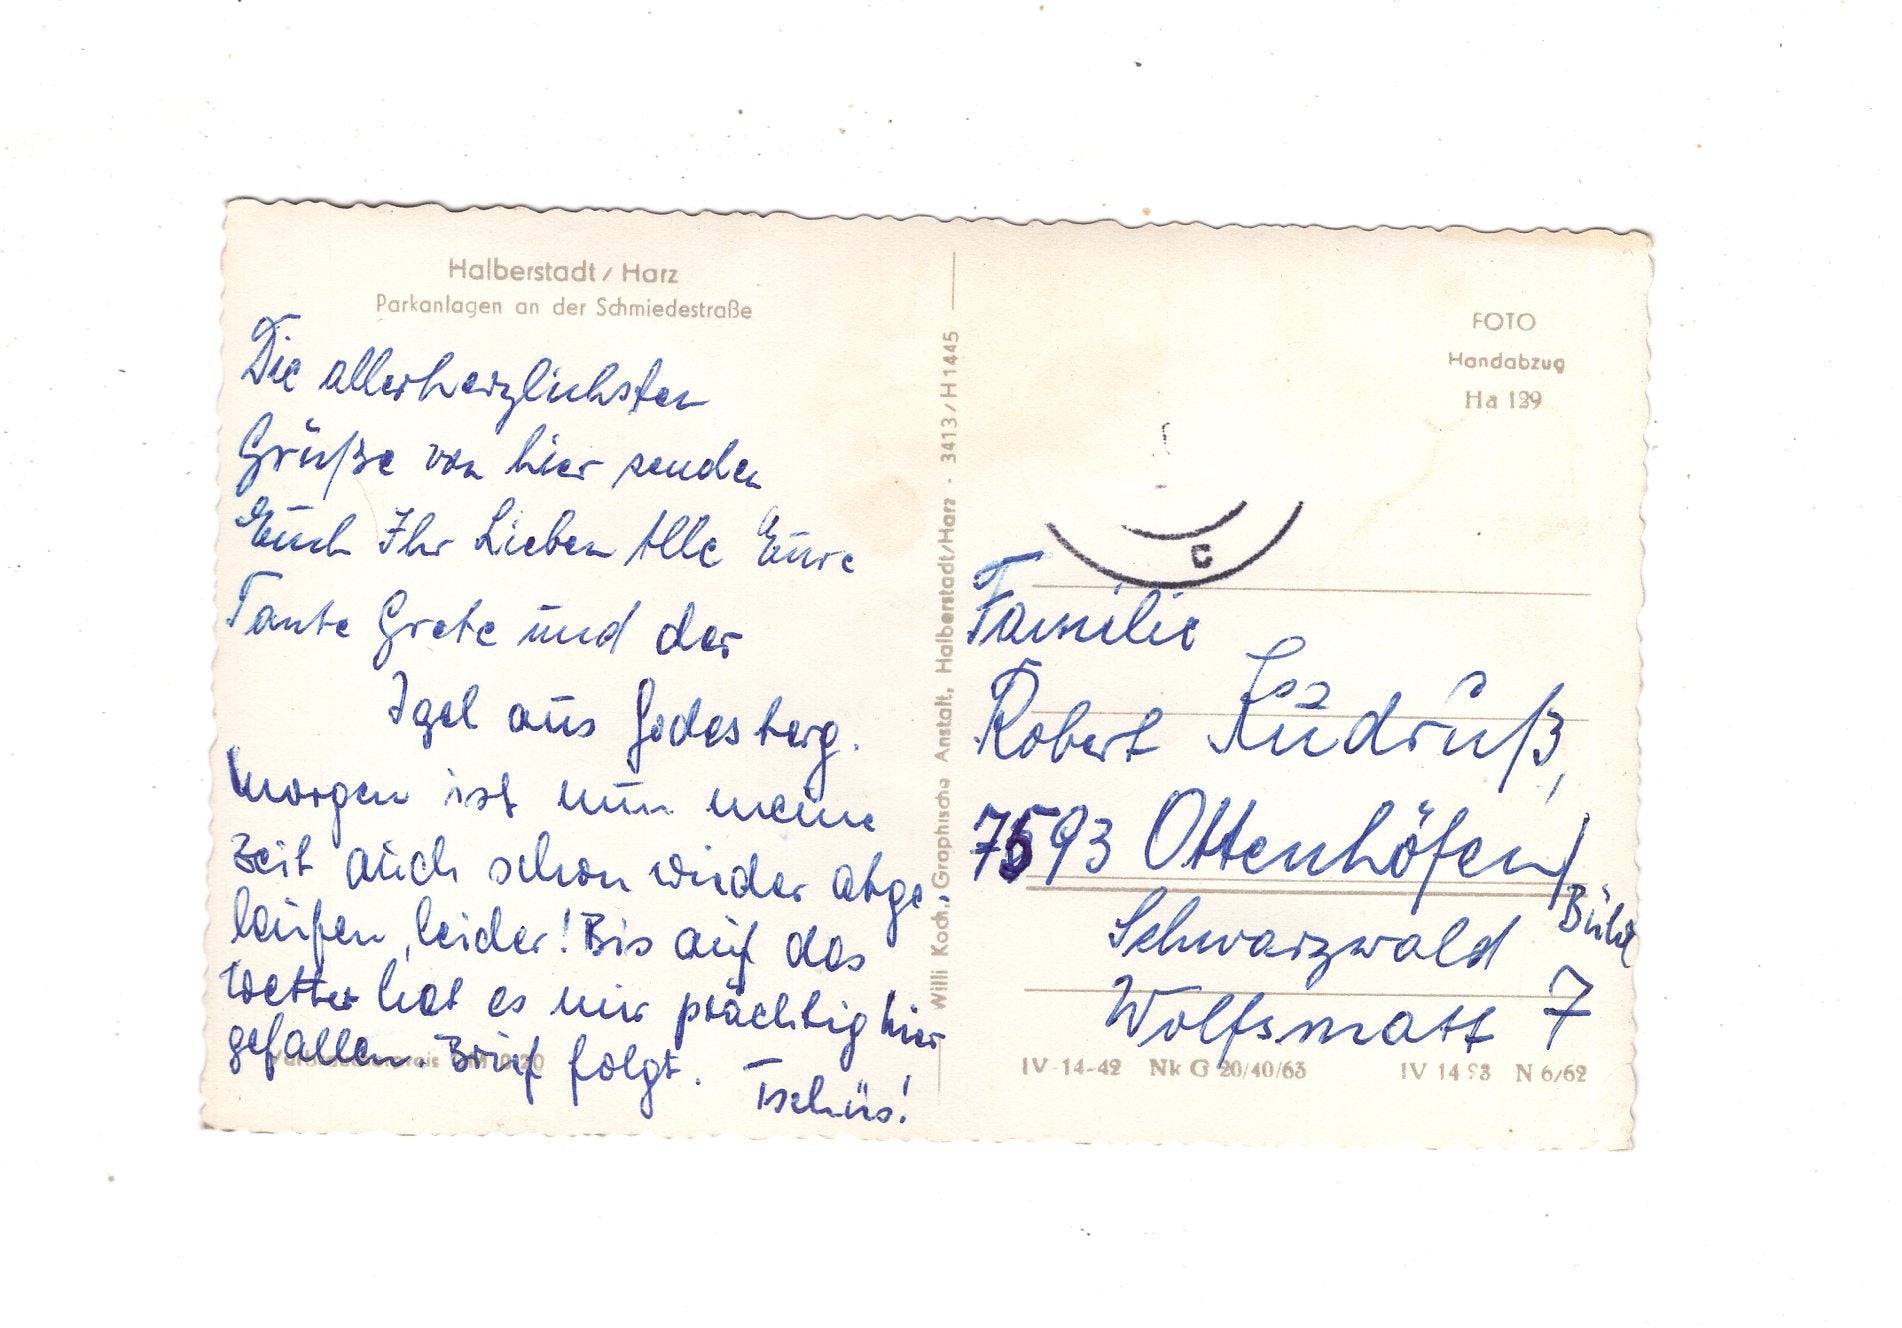 Halberstadt / Harz
Parkanlagen an der Schmiedestraße
Die allerherzlichsten
Grüße von hier senden
Euch Ihr Lieben Alle Eure
Tante Grete und der
Igel aus Godesberg.
Morgen ist nun meine
Zeit auch schon wieder abge-
laufen, leider! Bis auf das
Wetter hat es mir prächtig hier
gefallen. Brief folgt. Tschüs!
Willi Koch, Graphische Anstalt, Halberstadt/Harz · 3413/H 1445
FOTO
Handabzug
Ha 139
C
Familie
Robert
7593 Ottenhöfen/
Bühl
Schwarzwald
Wolfsmatt 7
IV-14-42 Nk G 20/40/63 IV 14 N 6/62